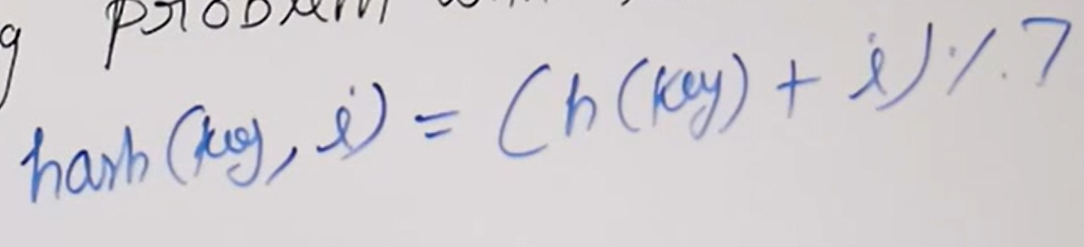 g problem
hash (key, i) = (h (key) + i) % 7